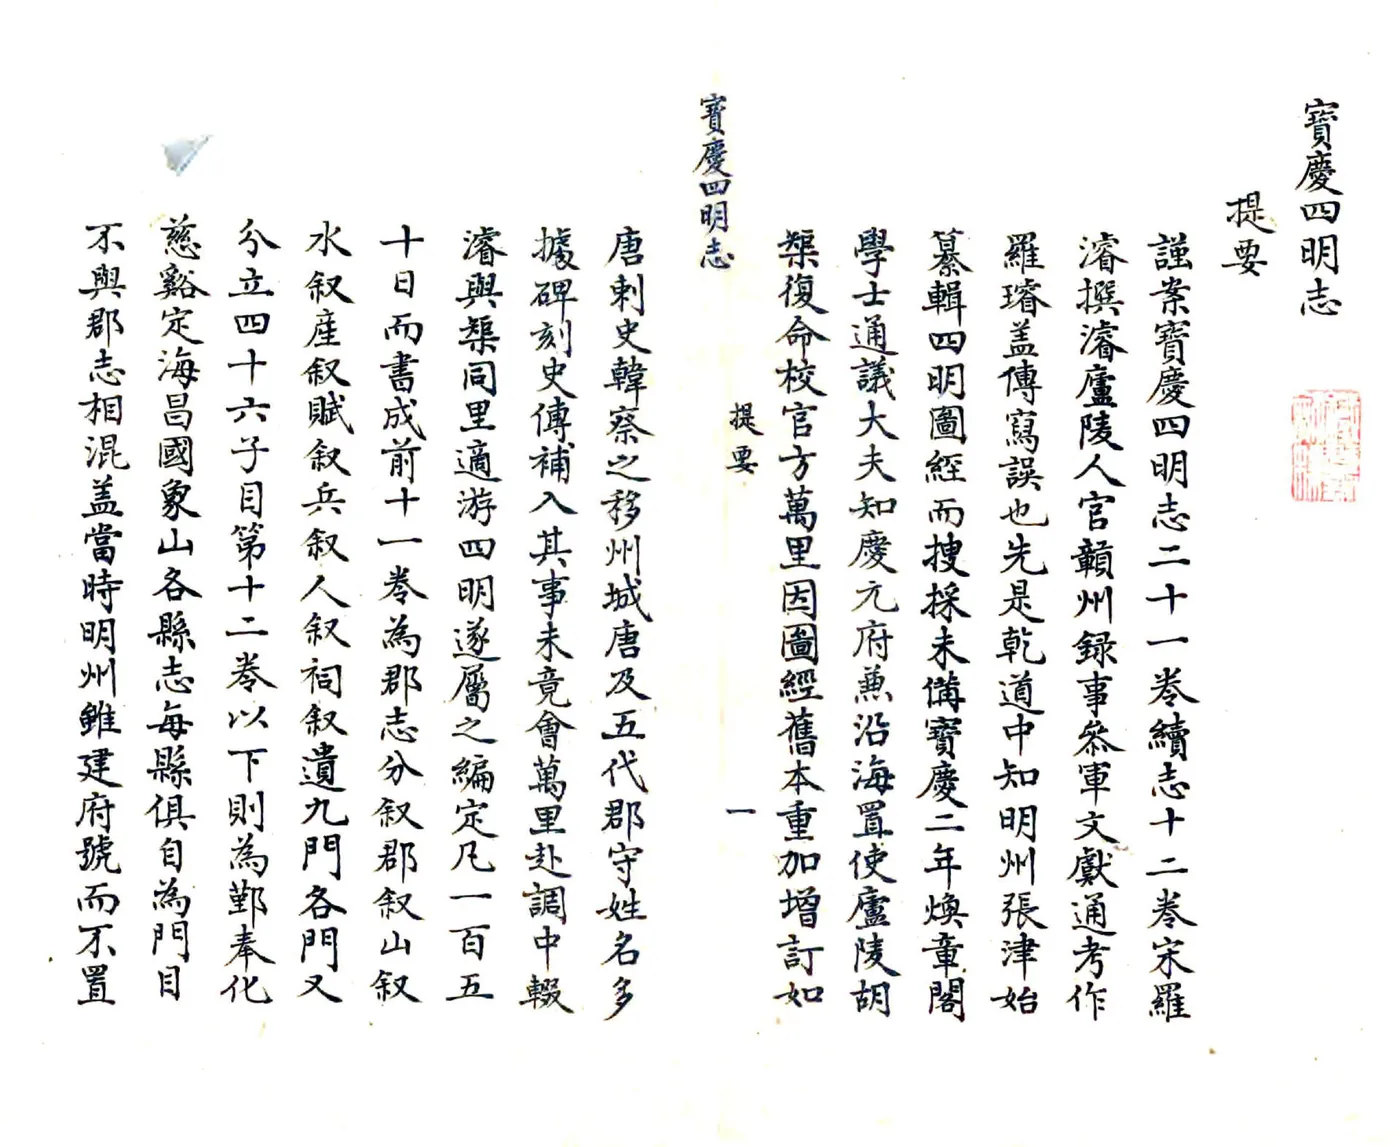 寶慶四明志
提要
謹案寶慶四明志二十一卷續志十二卷宋羅
濬撰濬廬陵人官贛州録事叅軍文獻通考作
羅璿盖傳寫誤也先是乾道中知明州張津始
纂輯四明圖經而搜採未備寶慶二年煥章閣
學士通議大夫知慶元府兼沿海置使廬陵胡
榘復命校官方萬里因圖經舊本重加增訂如
寶慶四明志
提要
一
唐刺史韓察之移州城唐及五代郡守姓名多
據碑刻史傳補入其事未竟會萬里赴調中輟
濬與榘同里適游四明遂屬之編定凡一百五
十日而書成前十一卷為郡志分叙郡叙山叙
水叙産叙賦叙兵叙人叙祠叙遺九門各門又
分立四十六子目第十二卷以下則為鄞奉化
慈谿定海昌國象山各縣志每縣俱自為門目
不與郡志相混盖當時明州雖建府號而不置